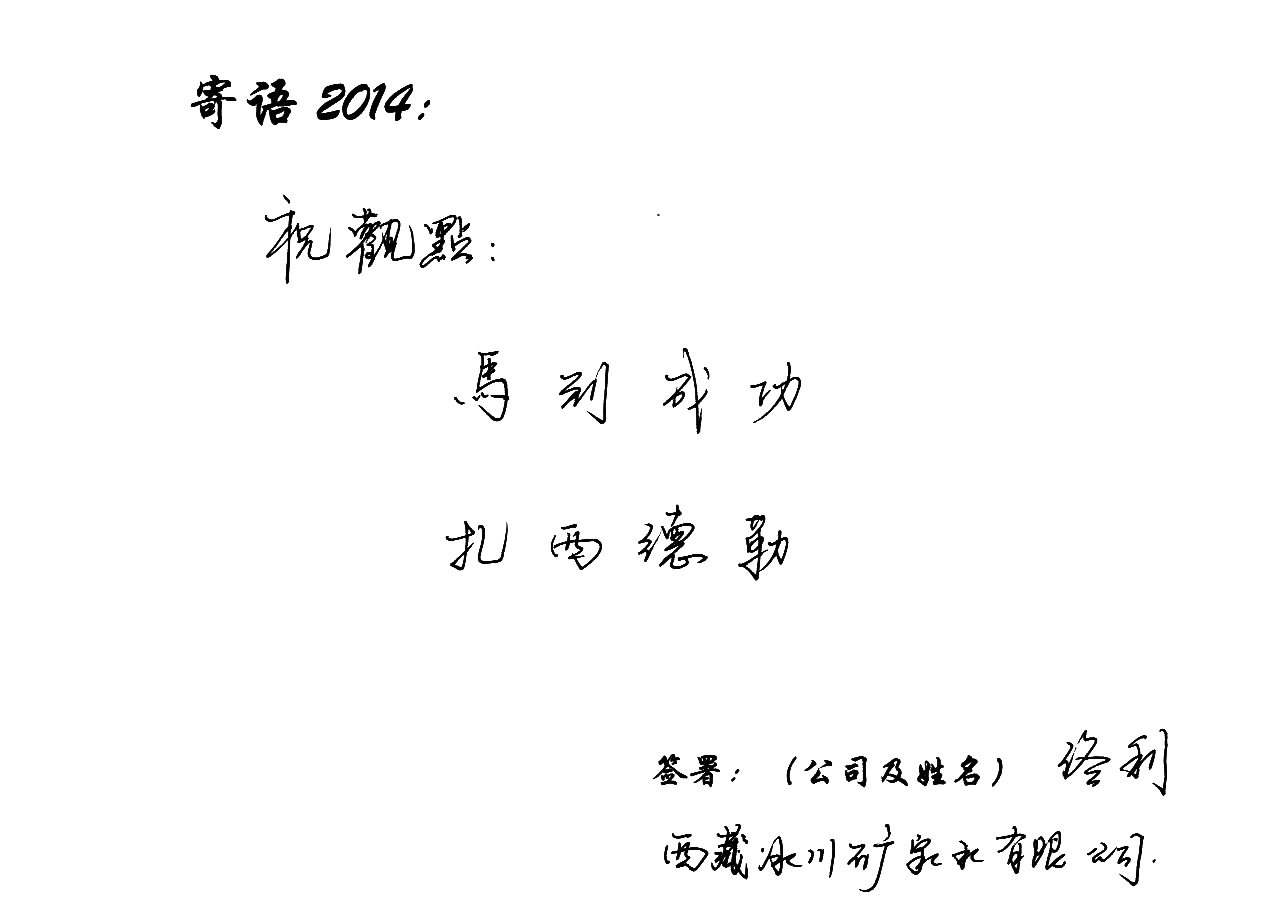 寄语 2014：
祝觀點：
馬到成功
扎西德勒
签署：（公司及姓名） 终利
西藏冰川矿泉水有限公司.